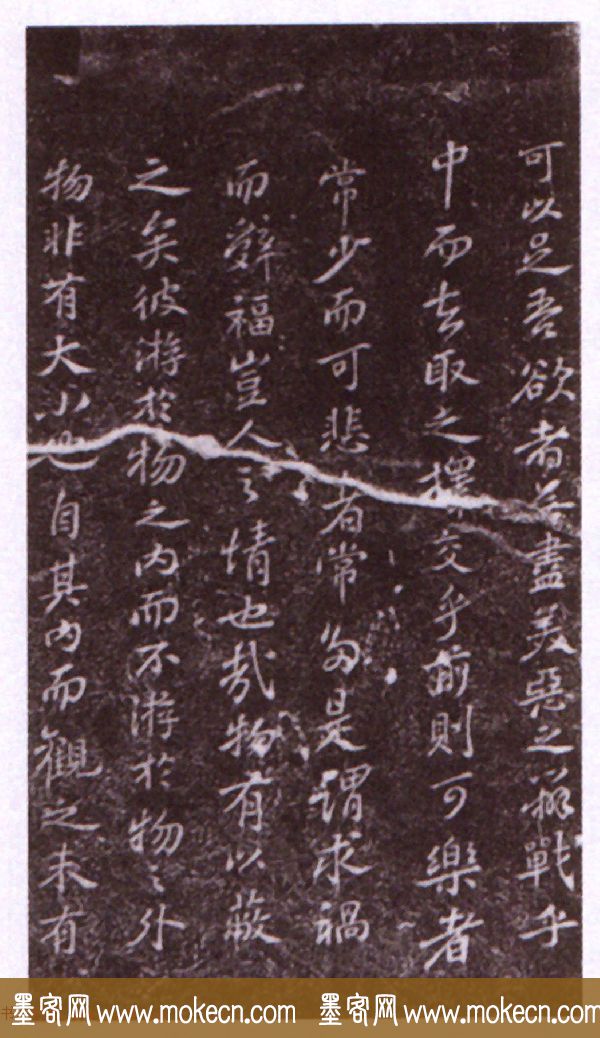 可以足吾欲者盡美惡之辨戰乎
中而去取之擇交乎前則可樂者
常少而可悲者常多是謂求禍
而辭福豈人之情也哉物有以蔽
之矣彼游於物之内而不游於物〻外
物非有大小也自其内而觀之未有
墨客网 www.mokecn.com 墨客网 www.mokecn.com